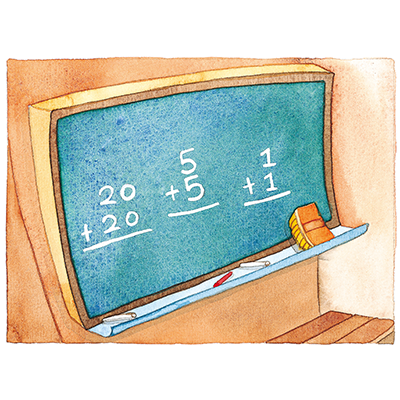 20
+ 20
5
+ 5
1
+ 1